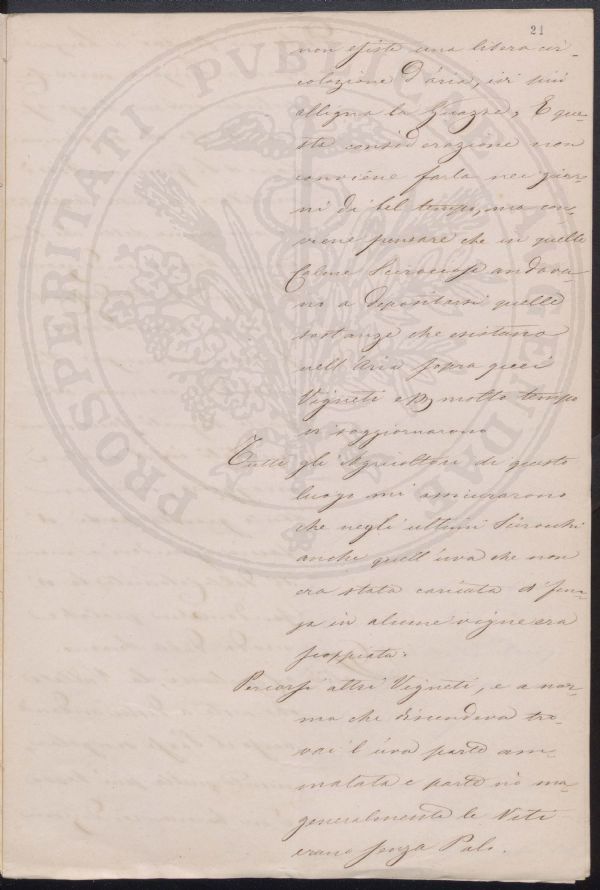 21
non esiste una libera cir-
colazione d'aria, ivi più
alligna la
E que-
sta considerazione non
conviene farla nei gior-
ni di bel tempo, ma con-
viene pensare che in quelle
Calme Sciroccose andava-
no a depositarsi quelle
sostanze che esistano
nell'Aria sopra quei
Vigneti e molto tempo
vi soggiornarono
Tutti gli Agricoltori di questo
luogo mi assicurarono
che negli ultimi Sirocchi
anche quell'uva che non
era stata
in alcune vigne era
scoppiata.
Percorsi altri Vigneti, e a nor-
ma che discendeva tro-
vai l'uva parte am-
malata e parte nò ma
generalmente le Viti
erano senza Palo.
PROSPERITATI PVBLICAE AVGENDAE